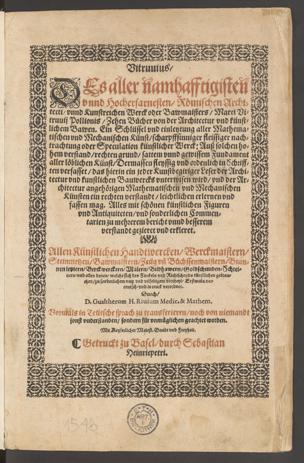 Vitruuius/
Des aller namhafftigisten
vnnd Hocherfarnesten/ Römischen Archi-
tecti/ vnnd Kunstreichen Werck oder Bawmeisters/ Marci Vi-
truuij Pollionis/ Zehen Bücher von der Architectur vnd künst-
lichen Bawen. Ein Schlüssel vnd einleytung aller Mathema-
tischen vnd Mechanischen Künst/ scharpffsinniger fleissiger nach-
trachtung oder Speculation künstlicher Werck/ Auß solchen ho-
hem verstand/ rechten grund/ satem vnnd gewissem Fundament
aller löblichen Künst/ Dermassen fleyssig vnd ordenlich in Schriff-
ten verfasset/ das hierin ein jeder Kunstbegiriger Leser der Archi-
tectur vnd künstlichen Bauwercks vnderwisen wird/ vnd der Ar-
chitectur angehörigen Mathematischen vnd Mechanischen
Künsten ein rechten verstand/ leichtlichen erlernen vnd
fassen mag. Alles mit schönen künstlichen Figuren
vnd Antiquiteten/ vnd sonderlichen Commen-
tarien zu mehrerem bericht vnnd besserem
verstand gezieret vnd erkleret.
Allen Künstlichen Handtwercken/ Werckmaistern/
Steinmetzen/ Bawmaistern/ Zeug vnd Büchssenmaistern/ Brun-
nenleytern/ Berckwercken/ Malern/ Bildhawern/ Goldschmiden/ Schrey-
Durch/
D. Gualtherum H. Riuium Medic. & Mathem.
Vormals in Teütsche sprach zu transferieren/ noch von niemandt
sonst vnderstanden/ sonder für vnmüglichen geachtet worden.
Mit Keyserlicher Maiest. Gnade vnd Freyheit.
Getruckt zu Basel/ durch Sebastian
Heinricpetri.